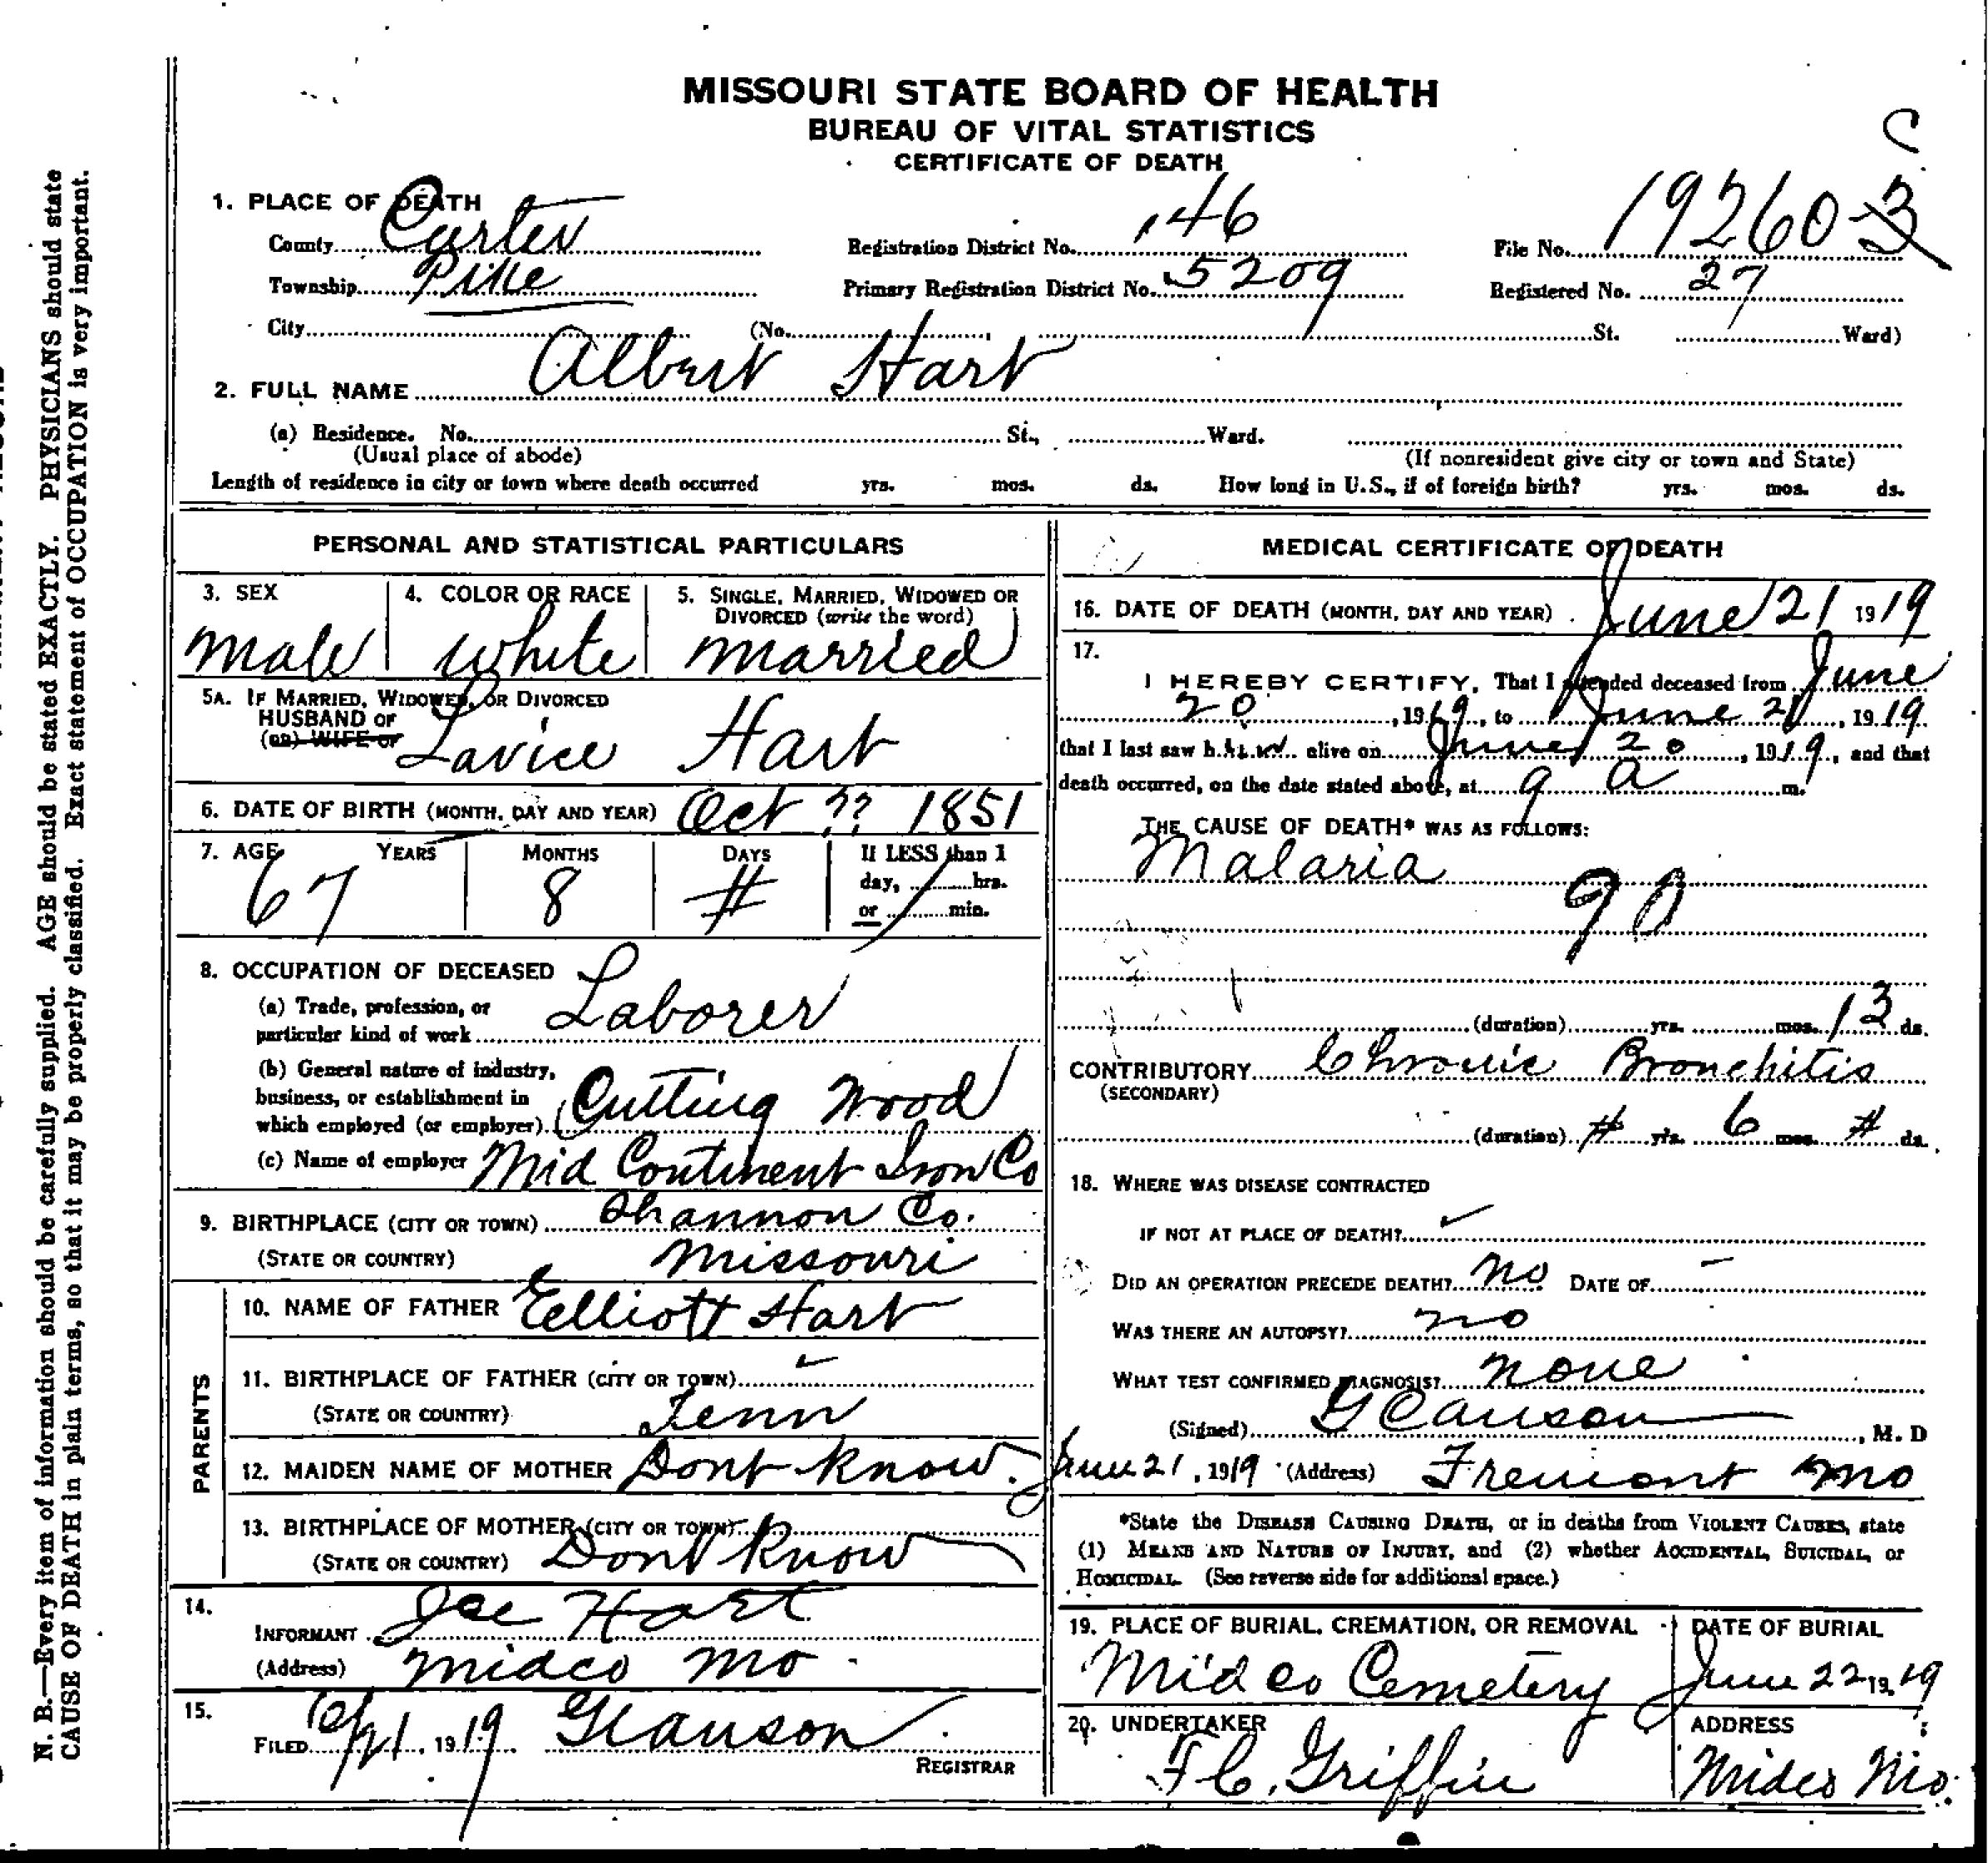 MISSOURI STATE BOARD OF HEALTH
BUREAU OF VITAL STATISTICS
CERTIFICATE OF DEATH
C
1. PLACE OF DEATH
County Carter Registration District No. 146 File No. 19260-3
Township Pike Primary Registration District No. 5209 Registered No. 27
City (No. , St. Ward)
2. FULL NAME Albert Hart
(a) Residence. No. St., Ward.
(Usual place of abode) (If nonresident give city or town and State)
Length of residence in city or town where death occurred yrs. mos. ds. How long in U.S., if of foreign birth? yrs. mos. ds.
PERSONAL AND STATISTICAL PARTICULARS
3. SEX 4. COLOR OR RACE 5. SINGLE, MARRIED, WIDOWED OR
DIVORCED (write the word)
Male White Married
5A. IF MARRIED, WIDOWED, OR DIVORCED
HUSBAND OF
(OR) WIFE OF Lavice Hart
6. DATE OF BIRTH (MONTH, DAY AND YEAR) Oct ?? 1851
7. AGE YEARS MONTHS DAYS If LESS than 1
day, hrs.
or min.
67 8 #
8. OCCUPATION OF DECEASED
(a) Trade, profession, or
particular kind of work Laborer
(b) General nature of industry,
business, or establishment in
which employed (or employer) Cutting Wood
(c) Name of employer Mid Continent Iron Co
9. BIRTHPLACE (CITY OR TOWN) Shannon Co.
(STATE OR COUNTRY) Missouri
PARENTS
10. NAME OF FATHER Eelliott Hart
11. BIRTHPLACE OF FATHER (CITY OR TOWN)
(STATE OR COUNTRY) Tenn
12. MAIDEN NAME OF MOTHER Dont Know.
13. BIRTHPLACE OF MOTHER (CITY OR TOWN)
(STATE OR COUNTRY) Dont Know
14.
INFORMANT Joe Hart
(Address) Midco Mo.
15.
FILED 1919
REGISTRAR
MEDICAL CERTIFICATE OF DEATH
16. DATE OF DEATH (MONTH, DAY AND YEAR) June 21 1919
17.
I HEREBY CERTIFY, That I attended deceased from June
20, 1919, to June 21, 1919
that I last saw him alive on June 20, 1919, and that
death occurred, on the date stated above, at 9 a m.
THE CAUSE OF DEATH* WAS AS FOLLOWS:
Malaria
(duration) yrs. mos. 13 ds.
CONTRIBUTORY Chronic Bronchitis
(SECONDARY)
(duration) # yrs. 6 mos. # ds.
18. WHERE WAS DISEASE CONTRACTED
IF NOT AT PLACE OF DEATH?
DID AN OPERATION PRECEDE DEATH? No DATE OF -
WAS THERE AN AUTOPSY? no
WHAT TEST CONFIRMED DIAGNOSIS? None
(Signed) , M. D
June 21, 1919 (Address) Fremont Mo
*State the DISEASE CAUSING DEATH, or in deaths from VIOLENT CAUSES, state
(1) MEANS AND NATURE OF INJURY, and (2) whether ACCIDENTAL, SUICIDAL, or
HOMICIDAL. (See reverse side for additional space.)
19. PLACE OF BURIAL, CREMATION, OR REMOVAL DATE OF BURIAL
Midco Cemetery June 22 1919
20. UNDERTAKER ADDRESS
F C. Griffin Midco Mo.
N. B.—Every item of information should be carefully supplied. AGE should be stated EXACTLY. PHYSICIANS should state
CAUSE OF DEATH in plain terms, so that it may be properly classified. Exact statement of OCCUPATION is very important.